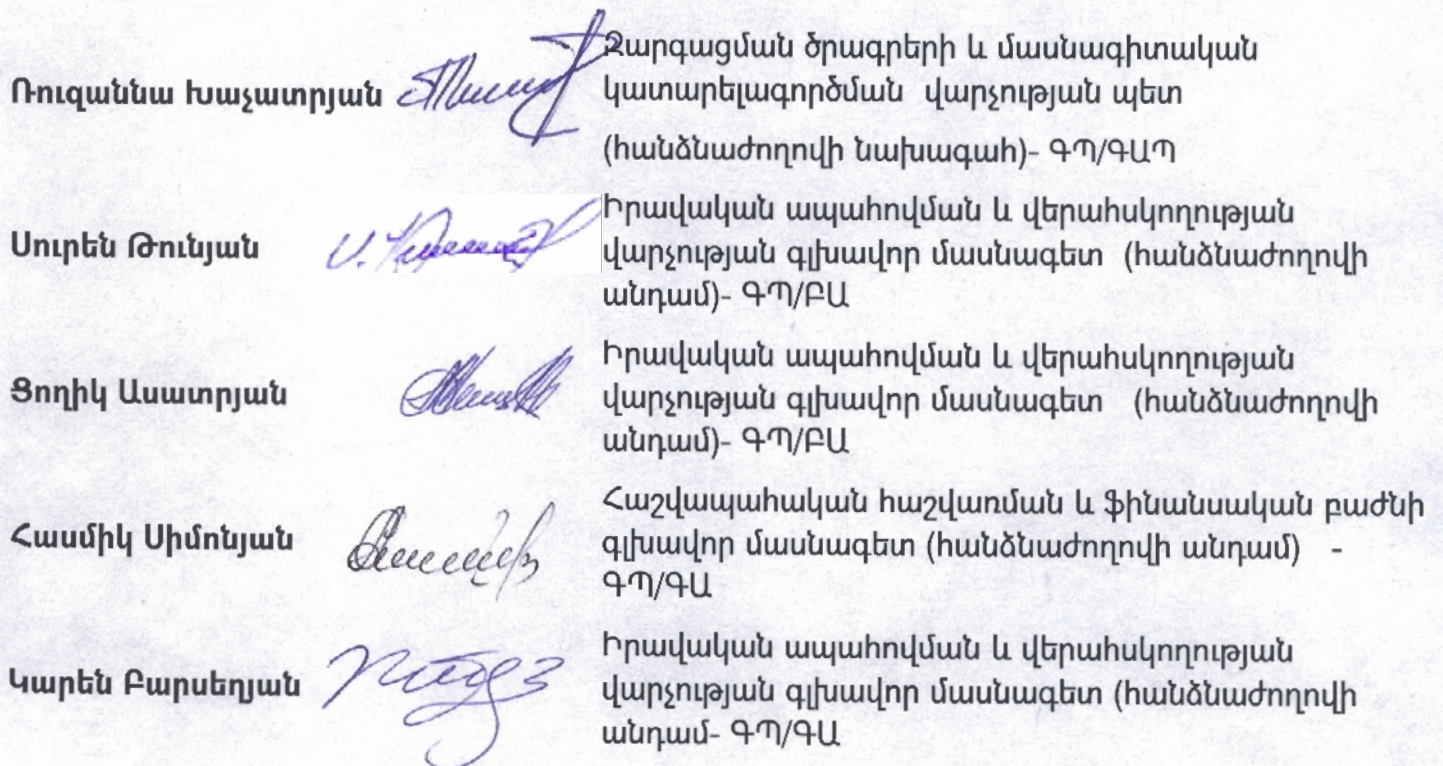 Ռուզաննա Խաչատրյան
Զարգացման ծրագրերի և մասնագիտական
կատարելագործման վարչության պետ
(հանձնաժողովի նախագահ)- ԳՊ/ԳԱՊ
Սուրեն Թունյան
Իրավական ապահովման և վերահսկողության
վարչության գլխավոր մասնագետ (հանձնաժողովի
անդամ)- ԳՊ/ԲԱ
Ցողիկ Ասատրյան
Իրավական ապահովման և վերահսկողության
վարչության գլխավոր մասնագետ (հանձնաժողովի
անդամ)- ԳՊ/ԲԱ
Հասմիկ Սիմոնյան
Հաշվապահական հաշվառման և ֆինանսական բաժնի
գլխավոր մասնագետ (հանձնաժողովի անդամ) -
ԳՊ/ԳԱ
Կարեն Բարսեղյան
Իրավական ապահովման և վերահսկողության
վարչության գլխավոր մասնագետ (հանձնաժողովի
անդամ- ԳՊ/ԳԱ